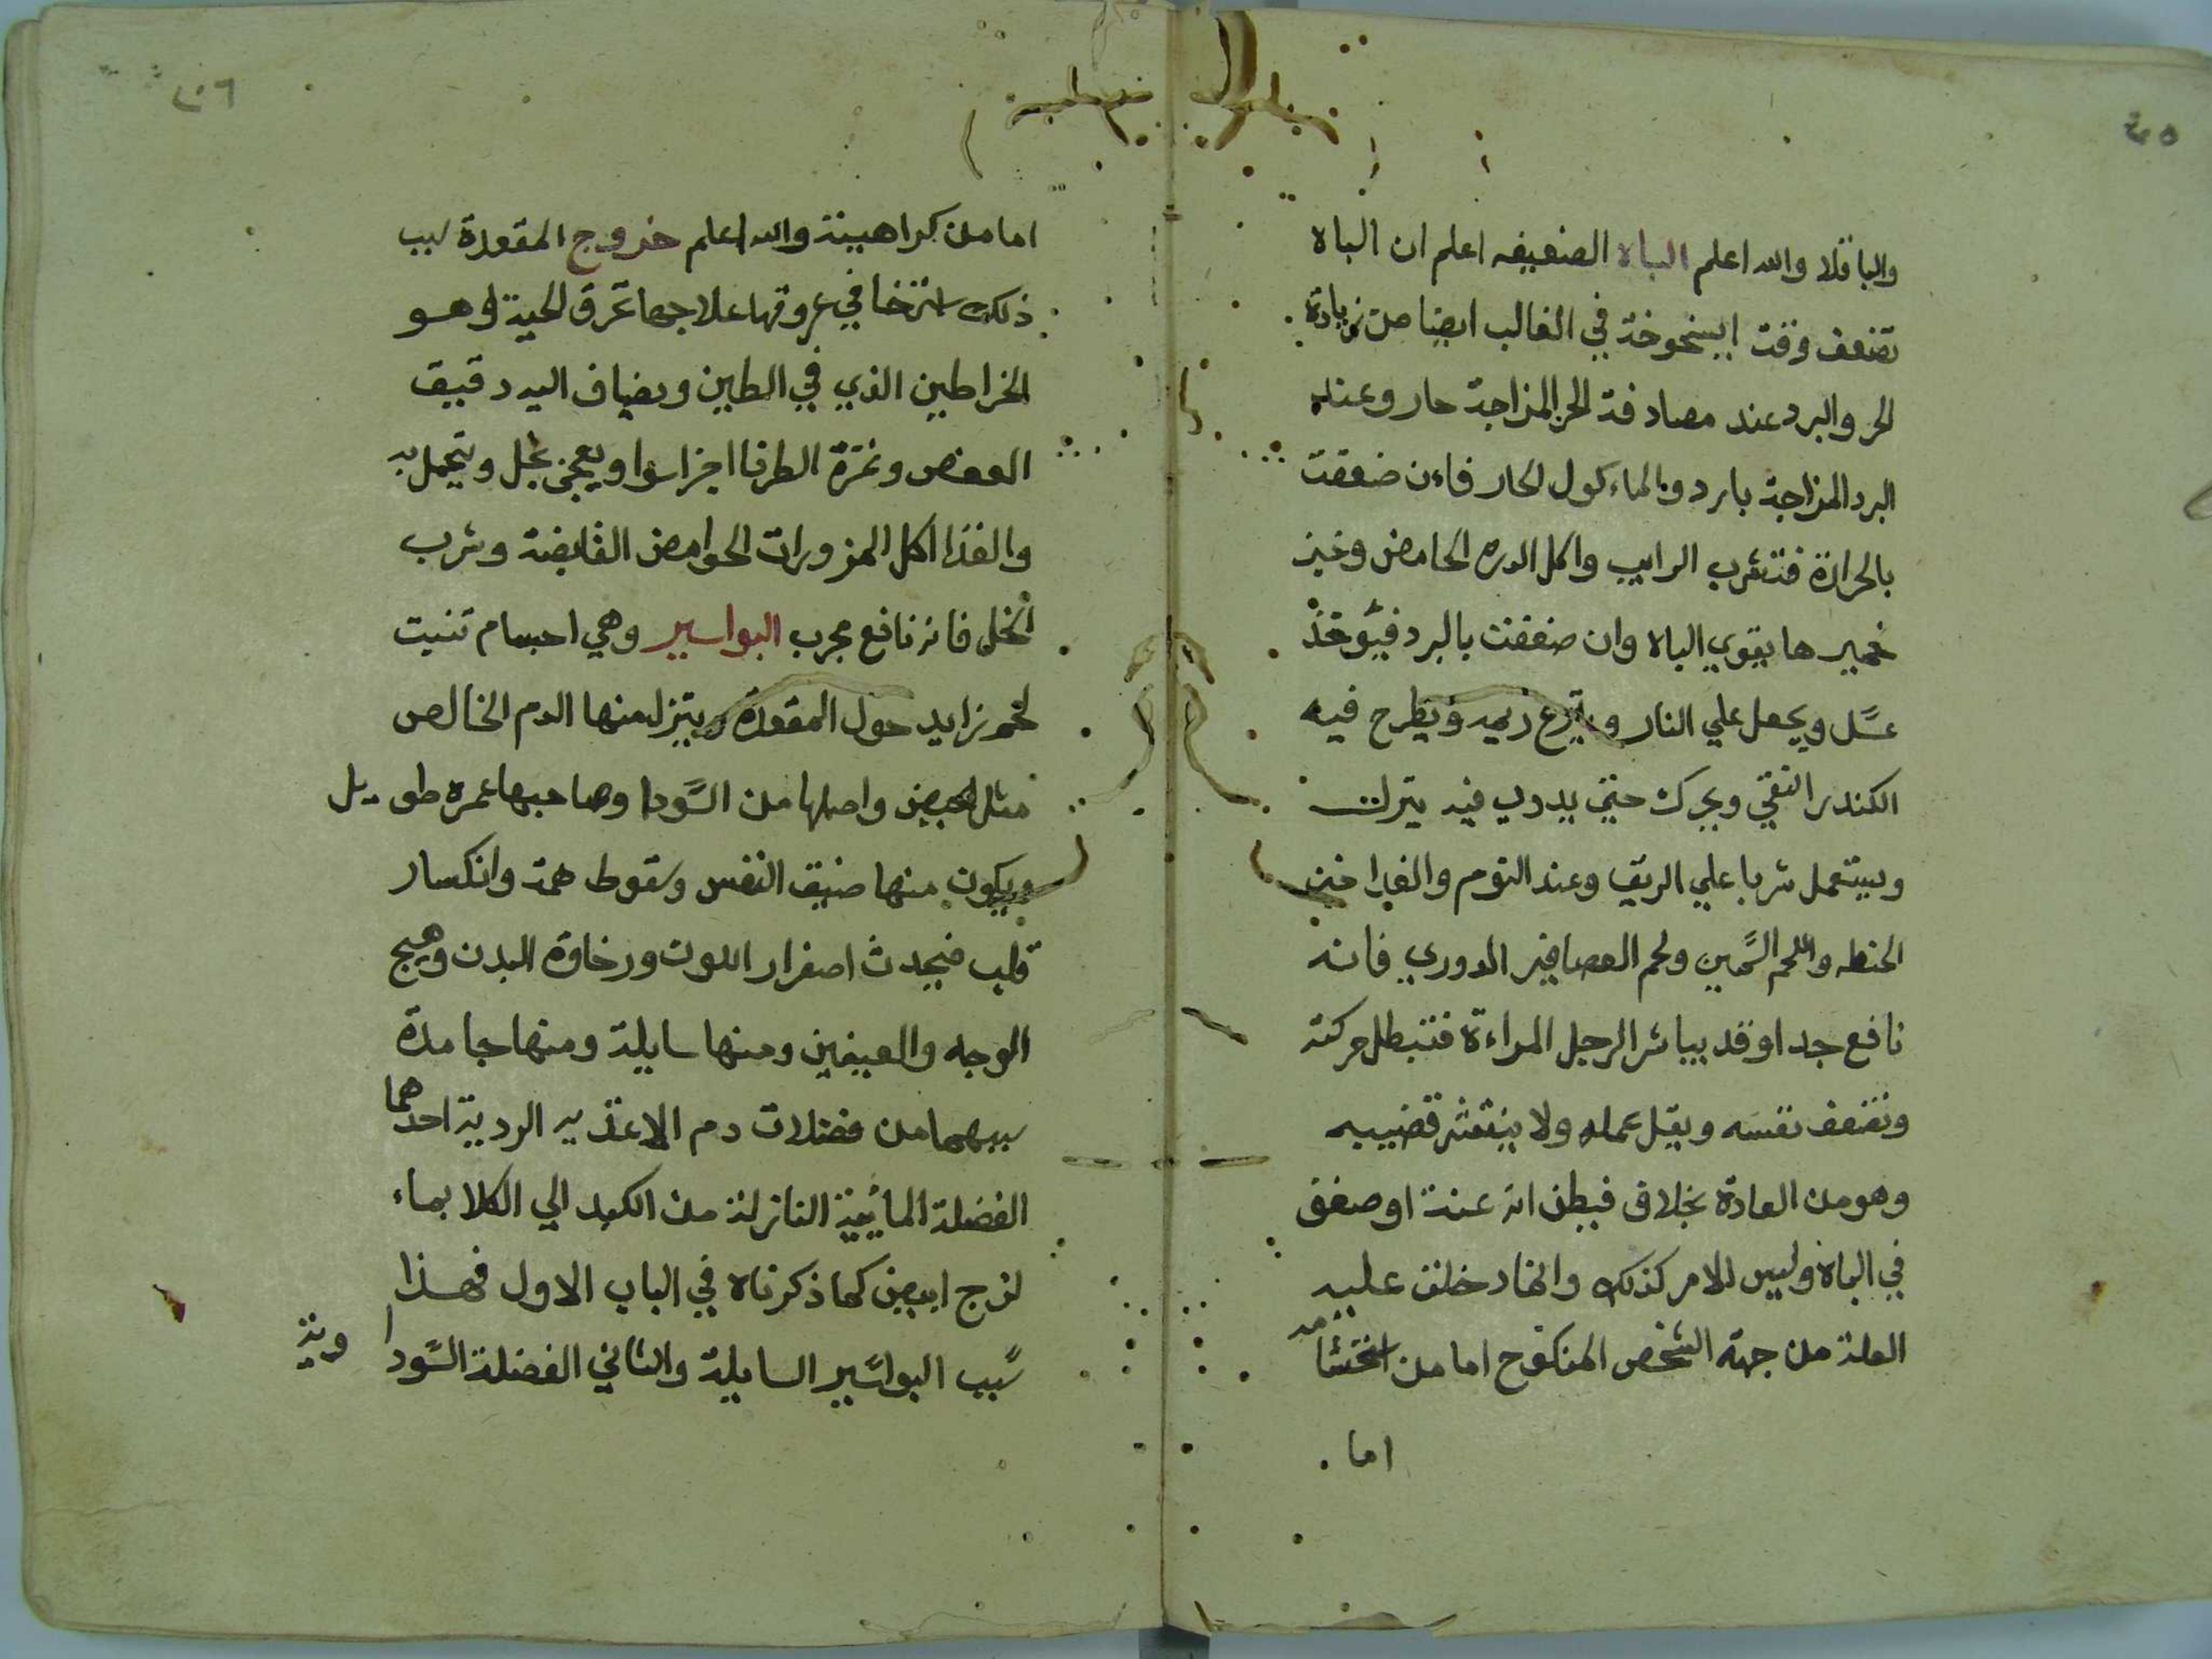 والباقلا والله اعلم الباه الضعيفه اعلم ان الباه
تضعف وقت الشيخوخة في الغالب ايضا من زيادة
الحر والبرد عند مصادفة الحر المزاجة حار وعند
البرد المزاجة بارد وبالماءكول الحار فاءن ضعفت
بالحرارة فتشرب الرايب واكل الدره الحامض وخبز
خميرها يقوي الباه وان ضعفت بالبرد فيؤخذ
عسل ويجعل علي النار وينزع زيده ويطرح فيه
الكندر النقي ويحرك حتي يدوب فيه يترك
ويستعمل شربا علي الريق وعند النوم والغدا خبز
الحنطه واللحم السمين ولحم العصافير الدوري فانه
نافع جدا وقد يباشر الرجل المراءة فتبطل حركته
وتضعف نفسه ويقل عمله ولا ينتشر قضيبه
وهو من العادة بخلاف فيظن انه عنة او ضعف
في الباه وليس الامر كذلك وانما دخلت عليه
العلة من جهة الشخص المنكوح اما من احتشامه
اما
٤٥
٤٦
اما من كراهيته والله اعلم خروج المقعدة سبب
ذلك استرخا في عروقها علاجها تحرق الحية او هو
الخراطين الذي في الطين ويضاف اليه دقيق
العفص وثمرة الطرفا اجزا سوا ويعجن بخل ويتحمل به
والغذا اكل المزورات الحوامض القابضة وشرب
الخل فانه نافع مجرب البواسير وهي اجسام تنبت
لحم زايد حول المقعدة وينزل منها الدم الخالص
مثل الحيض واصلها من السودا وصاحبها عمره طويل
ويكون منها ضيق النفس وسقوط همة وانكسار
قلب فيحدث اصفرار اللون ورخاوة البدن وهيج
الوجه والعينين ومنها سايلة ومنها جامدة
سببهما من فضلات دم الاغذيه الردية احدهما
الفضلة المائية النازلة من الكبد الي الكلا بماء
لزج ابيض كما ذكرناه في الباب الاول فهذا
سبب البواسير السايلة والثاني الفضلة السودا